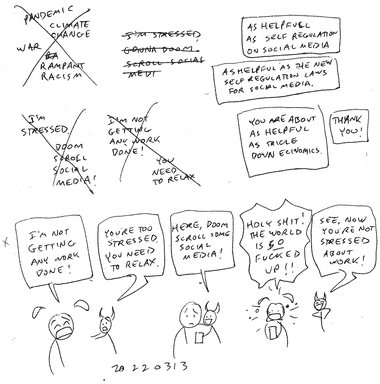 PANDEMIC
CLIMATE
CHANGE
WAR
RAMPANT
RACISM
I'M STRESSED
GONNA DOOM
SCROLL SOCIAL
MEDI
AS HELPFULL
AS SELF REGULATION
ON SOCIAL MEDIA
AS HELPFUL AS THE NEW
SELF REGULATION LAWS
FOR SOCIAL MEDIA.
I'M
STRESSED
DOOM
SCROLL
SOCIAL
MEDIA!
I'M NOT
GETTING
ANY WORK
DONE!
YOU
NEED
TO RELAX
YOU ARE ABOUT
AS HELPFUL
AS TRICLE
DOWN ECINOMICS.
THANK
YOU!
I'M NOT
GETTING
ANY WORK
DONE!
YOU'RE TOO
STRESSED.
YOU NEED
TO RELAX.
HERE, DOOM
SCROLL SOME
SOCIAL
MEDIA!
HOLY SHIT!
THE WORLD
IS SO
FUCKED
UP!!
SEE, NOW
YOU'RE NOT
STRESSED
ABOUT
WORK!
20220313